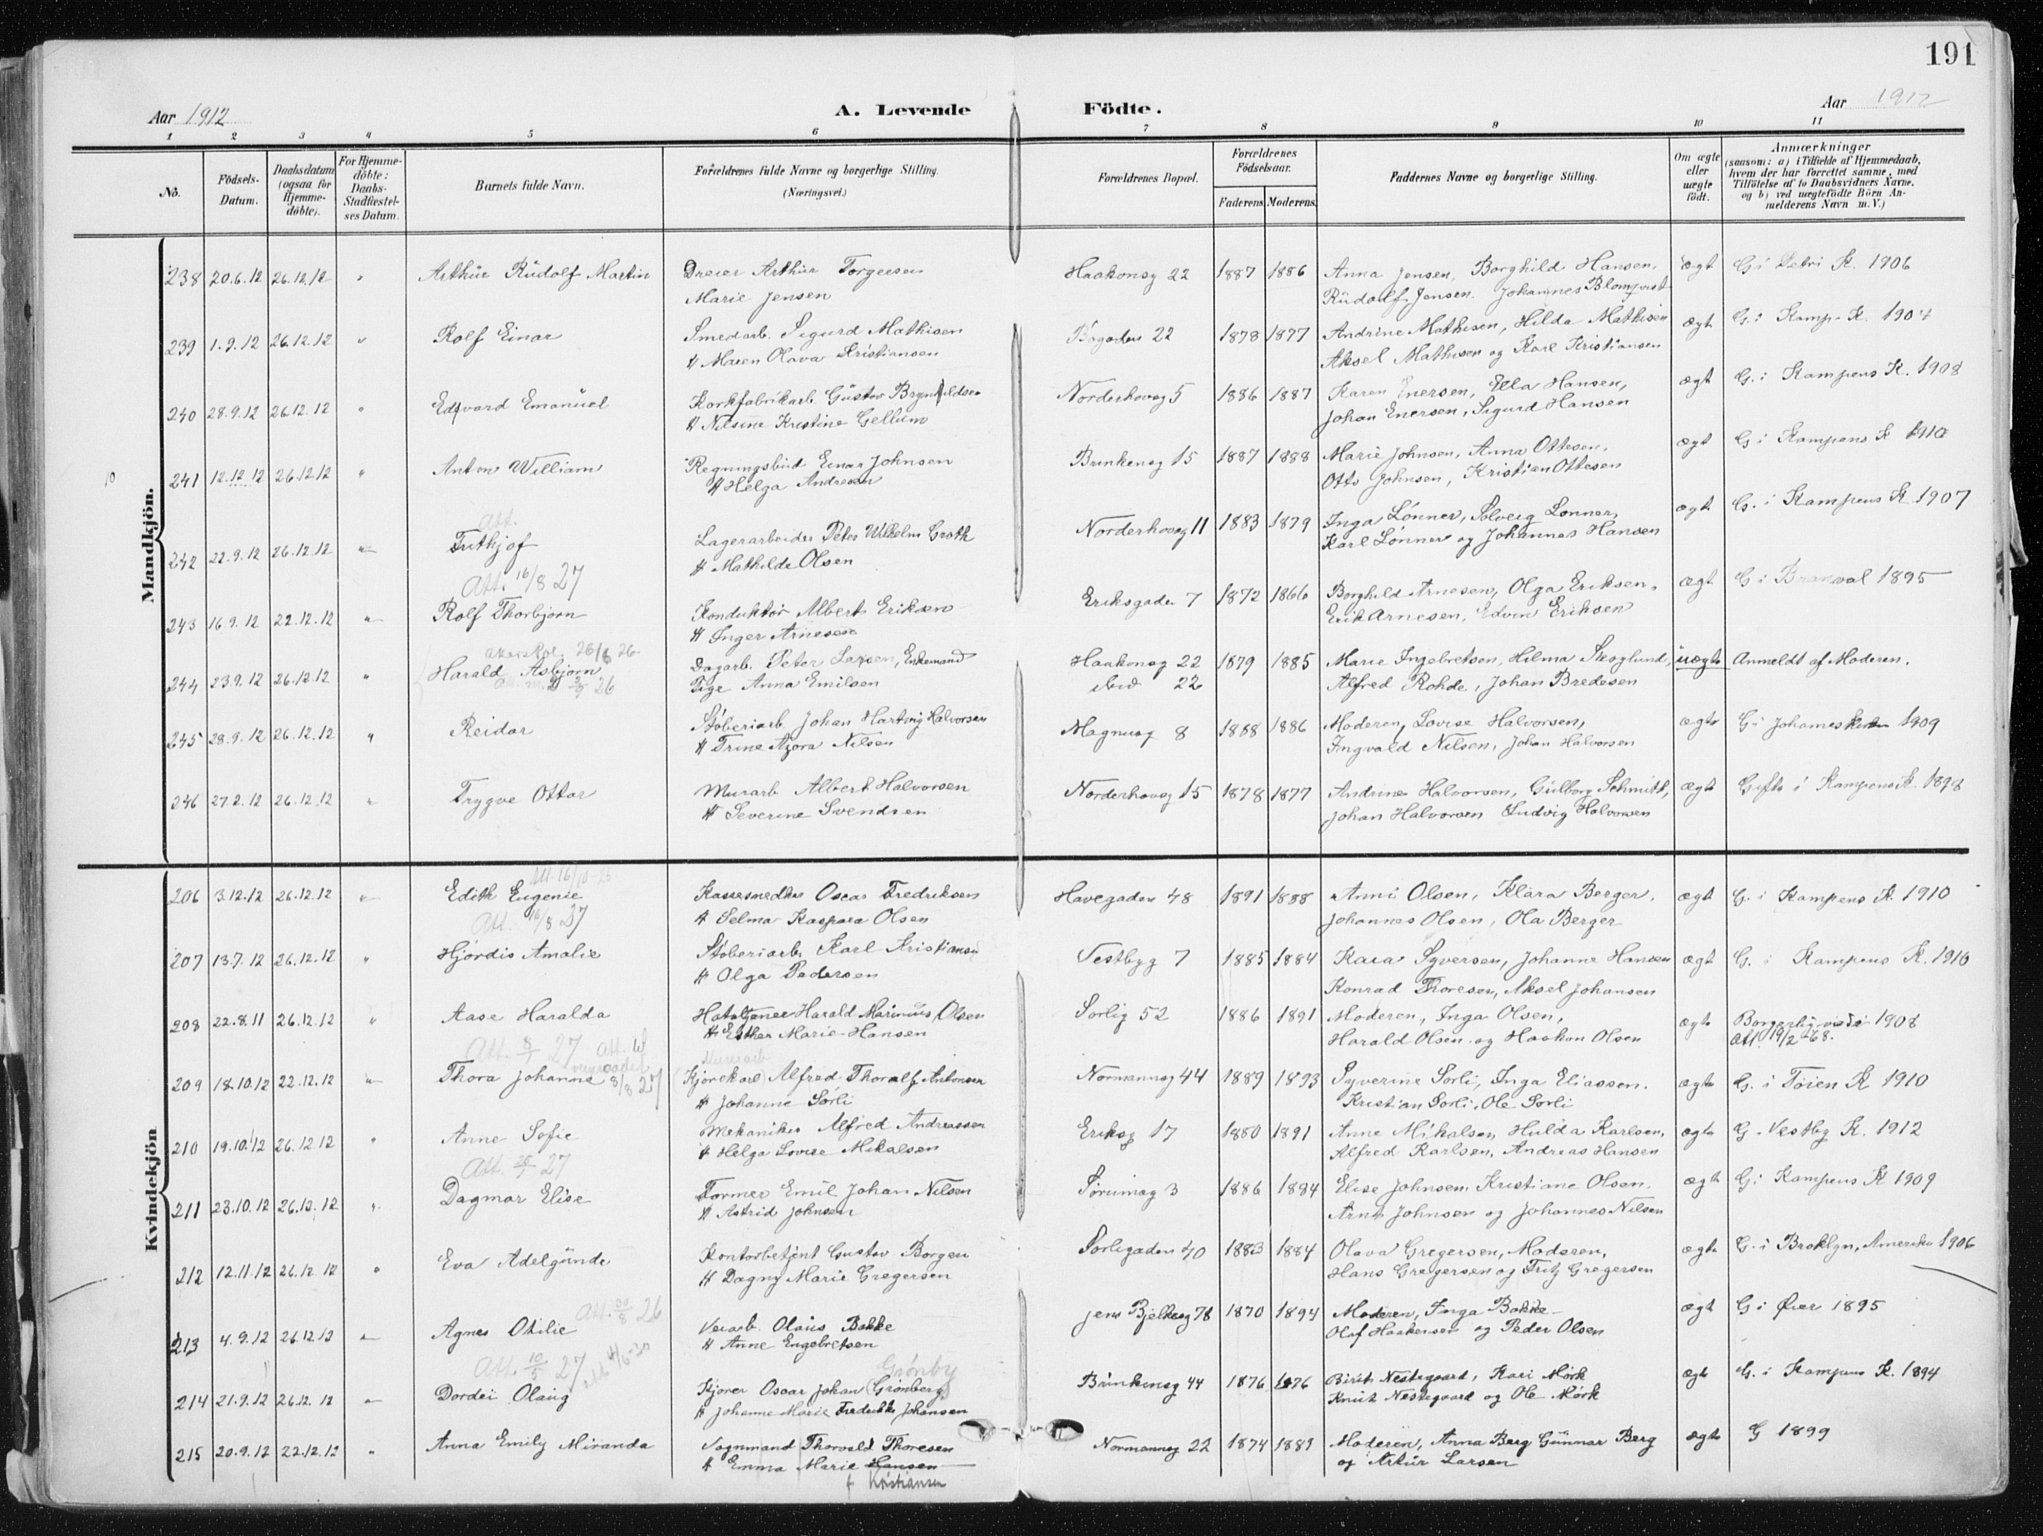 191
Aar 1912
A. Levende Födte.
Aar 1912
1 2 3 4 5 6 7 8 9 10 11
No.
Födsels-Datum.
Daabsdatum (ogsaa for Hjemmedöbte).
For Hjemmedöbte: Daabs-Stadfæstelses Datum.
Barnets fulde Navn.
Forældrenes fulde Navne og borgerlige Stilling. (Næringsvei.)
Forældrenes Bopæl.
Forældrenes Födselsaar.
Faderens Moderens.
Faddernes Navne og borgerlige Stilling.
Om ægte eller uægte födt.
Anmærkninger
(saasom: a) i Tilfælde af Hjemmedaab, hvem der har forrettet samme, med Tilföielse af to Daabsvidners Navne, og b) ved uægtefödte Börn Anmelderens Navn m. V.)
Mandkjön.
238 20.6.12 26.12.12 " Arthur Rudolf Martin Dreier Arthur Torgersen Haakonsg 22 1887 1886 Anna Jensen, Borghild Hansen, ægt G i Petri K. 1906
Marie Jensen Rudolf Jensen. Johannes Blomqvist
239 1.9.12 26.12.12 " Rolf Einar Smedarb. Sigurd Mathisen Bøgaden 22 1878 1877 Andrine Mathisen, Hilda Mathisen ægt G. i Kamp. K. 1904
H Maren Olava Kristiansen Aksel Mathisen og Karl Kristiansen
240 28.9.12 26.12.12 " Edvard Emanuel Korkfabrikarb. Gustav Brynhildsen Norderhovsg 5 1886 1887 Karen Enersen, Ella Hansen, ægt G. i Kampens K. 1908
H Nilsine Kristine Gellum Johan Enersen, Sigurd Hansen
10
241 12.12.12 26.12.12 " Anton William Regningsbud Einar Johnsen Brinkensg 15 1887 1888 Marie Johnsen, Anna Ottesen, ægt G i Kampens K 1910
H Helga Andresen Otto Johnsen, Kristian Ottesen
Att.
242 22.9.12 26.12.12 " Fritjof Lagerarbeider Peter Wilhelm Groth Norderhovsg 11 1883 1879 Inga Lønner, Solveig Lønner, ægt G. i Kampens K 1907
H Mathilde Olsen Karl Lønner og Johannes Hansen
Att. 16/8 27
243 16.9.12 22.12.12 " Rolf Thorbjørn Konduktør Albert Eriksen Eriksgaden 7 1872 1866 Borghild Arnesen, Olga Eriksen, ægt G i Branval 1895
H Inger Arnesen Erik Arnesen, Edvin Eriksen
26/8 26
244 23.9.12 26.12.12 " Harald Asbjørn Dagarb. Peter Larsen, Enkemand Haakonsg 22 1879 1885 Marie Ingebretsen, Hilma Skoglund, uægte Anmeldt af Moderen.
Pige Anna Emilsen ibid 22 Alfred Rohde, Johan Bredesen
245 28.9.12 26.12.12 " Reidar Støberiarb Johan Hartvig Halvorsen Magnusg 8 1888 1886 Moderen, Lovise Halvorsen, ægte G i Johanneskirken 1909
H Trine Azora Nilsen Ingvald Nilsen, Johan Halvorsen
246 27.2.12 26.12.12 " Trygve Ottar Murarb Albert Halvorsen Norderhovsg 15 1878 1877 Andrine Halvorsen, Gulborg Schmitt, ægt Gifte i Kampens K. 1898
H Severine Svendsen Johan Halvorsen Ludvig Halvorsen
Kvindekjön
206 3.12.12 26.12.12 " Edith Eugenie Kassesmed Oscar Fredriksen Havegaden 48 1891 1888 Anni Olsen, Klara Berger, ægt G. i Kampens K. 1910
H Selma Kaspara Olsen Johannes Olsen, Ola Berger
Att. 16/8 27
207 13.7.12 26.12.12 " Hjørdis Amalie Støberiarb. Karl Kristiansen Vestbyg 7 1885 1884 Kara Syversen, Johanne Hansen ægt G. i Kampens K. 1910
H Olga Pedersen Konrad Thoresen, Aksel Johansen
208 22.8.11 26.12.12 " Aase Haralda Hotaltjener Harald Marinius Olsen Sorlig 52 1886 1891 Moderen, Inga Olsen, ægte Borgerlig viede 1908
H Esther Marie Hansen Harald Olsen og Haakon Olsen Att. 19/2 68.
Att. 8/7 27 Att. 8/8 27
Murerarb
209 18.10.12 22.12.12 " Thora Johanne Kjørekarl Alfred Thoralf Antonsen Normannsg 44 1889 1893 Syverine Sorli, Inga Eliassen. ægte G. i Tøien K 1910
H Johanne Sorli Kristian Sorli, Ole Sorli
210 19.10.12 26.12.12 " Anne Sofie Mekaniker Alfred Andreassen Eriksg 17 1880 1891 Anne Mikalsen Hulda Karlsen, ægte G. Vestby K. 1912
H Helga Lovise Mikalsen Alfred Karlsen, Andreas Hansen
Att. 27
211 23.10.12 26.12.12 " Dagmar Elise Former Emil Johan Nilsen Sørumsg 3 1886 1894 Elise Johnsen, Kristiane Olsen. ægte G. i Kampens K 1909
H Astrid Johnsen Arnt Johnsen og Johannes Nilsen
212 12.11.12 26.12.12 " Eva Adelgunde Kontorbetjent Gustav Borgen Sorligaden 40 1883 1884 Olava Gregersen, Moderen, ægte G. i Broklyn, Amerika 1906
H Dagny Marie Gregersen Hans Gregersen og Fritz Gregersen
Att. 20/8 26
213 4.9.12 26.12.12 " Agnes Otilie Veiarb. Olaus Bakke Jens Bjelkesg 78 1870 1894 Moderen, Inga Bakke ægt G i Øier 1895
H Anne Engebretsen Olaf Haakensen og Peder Olsen
Att. 10/5 27 Grønby
214 21.9.12 26.12.12 " Dordei Olaug Kjører Oscar Johan (Grønberg) Brinkensg 44 1876 1876 Birit Nestegaard, Kari Mørk ægt G. i Kampens K. 1894
H Johanne Marie Fredrikke Johansen Knut Nestegaard og Ole Mørk
215 20.9.12 22.12.12 " Anna Emily Miranda Vognmand Thorvald Thoresen Normannsg 22 1874 1889 Moderen, Anna Berg Gunnar Berg ægte G 1899
H Emma Marie Hansen og Artur Larsen
f Kristiansen